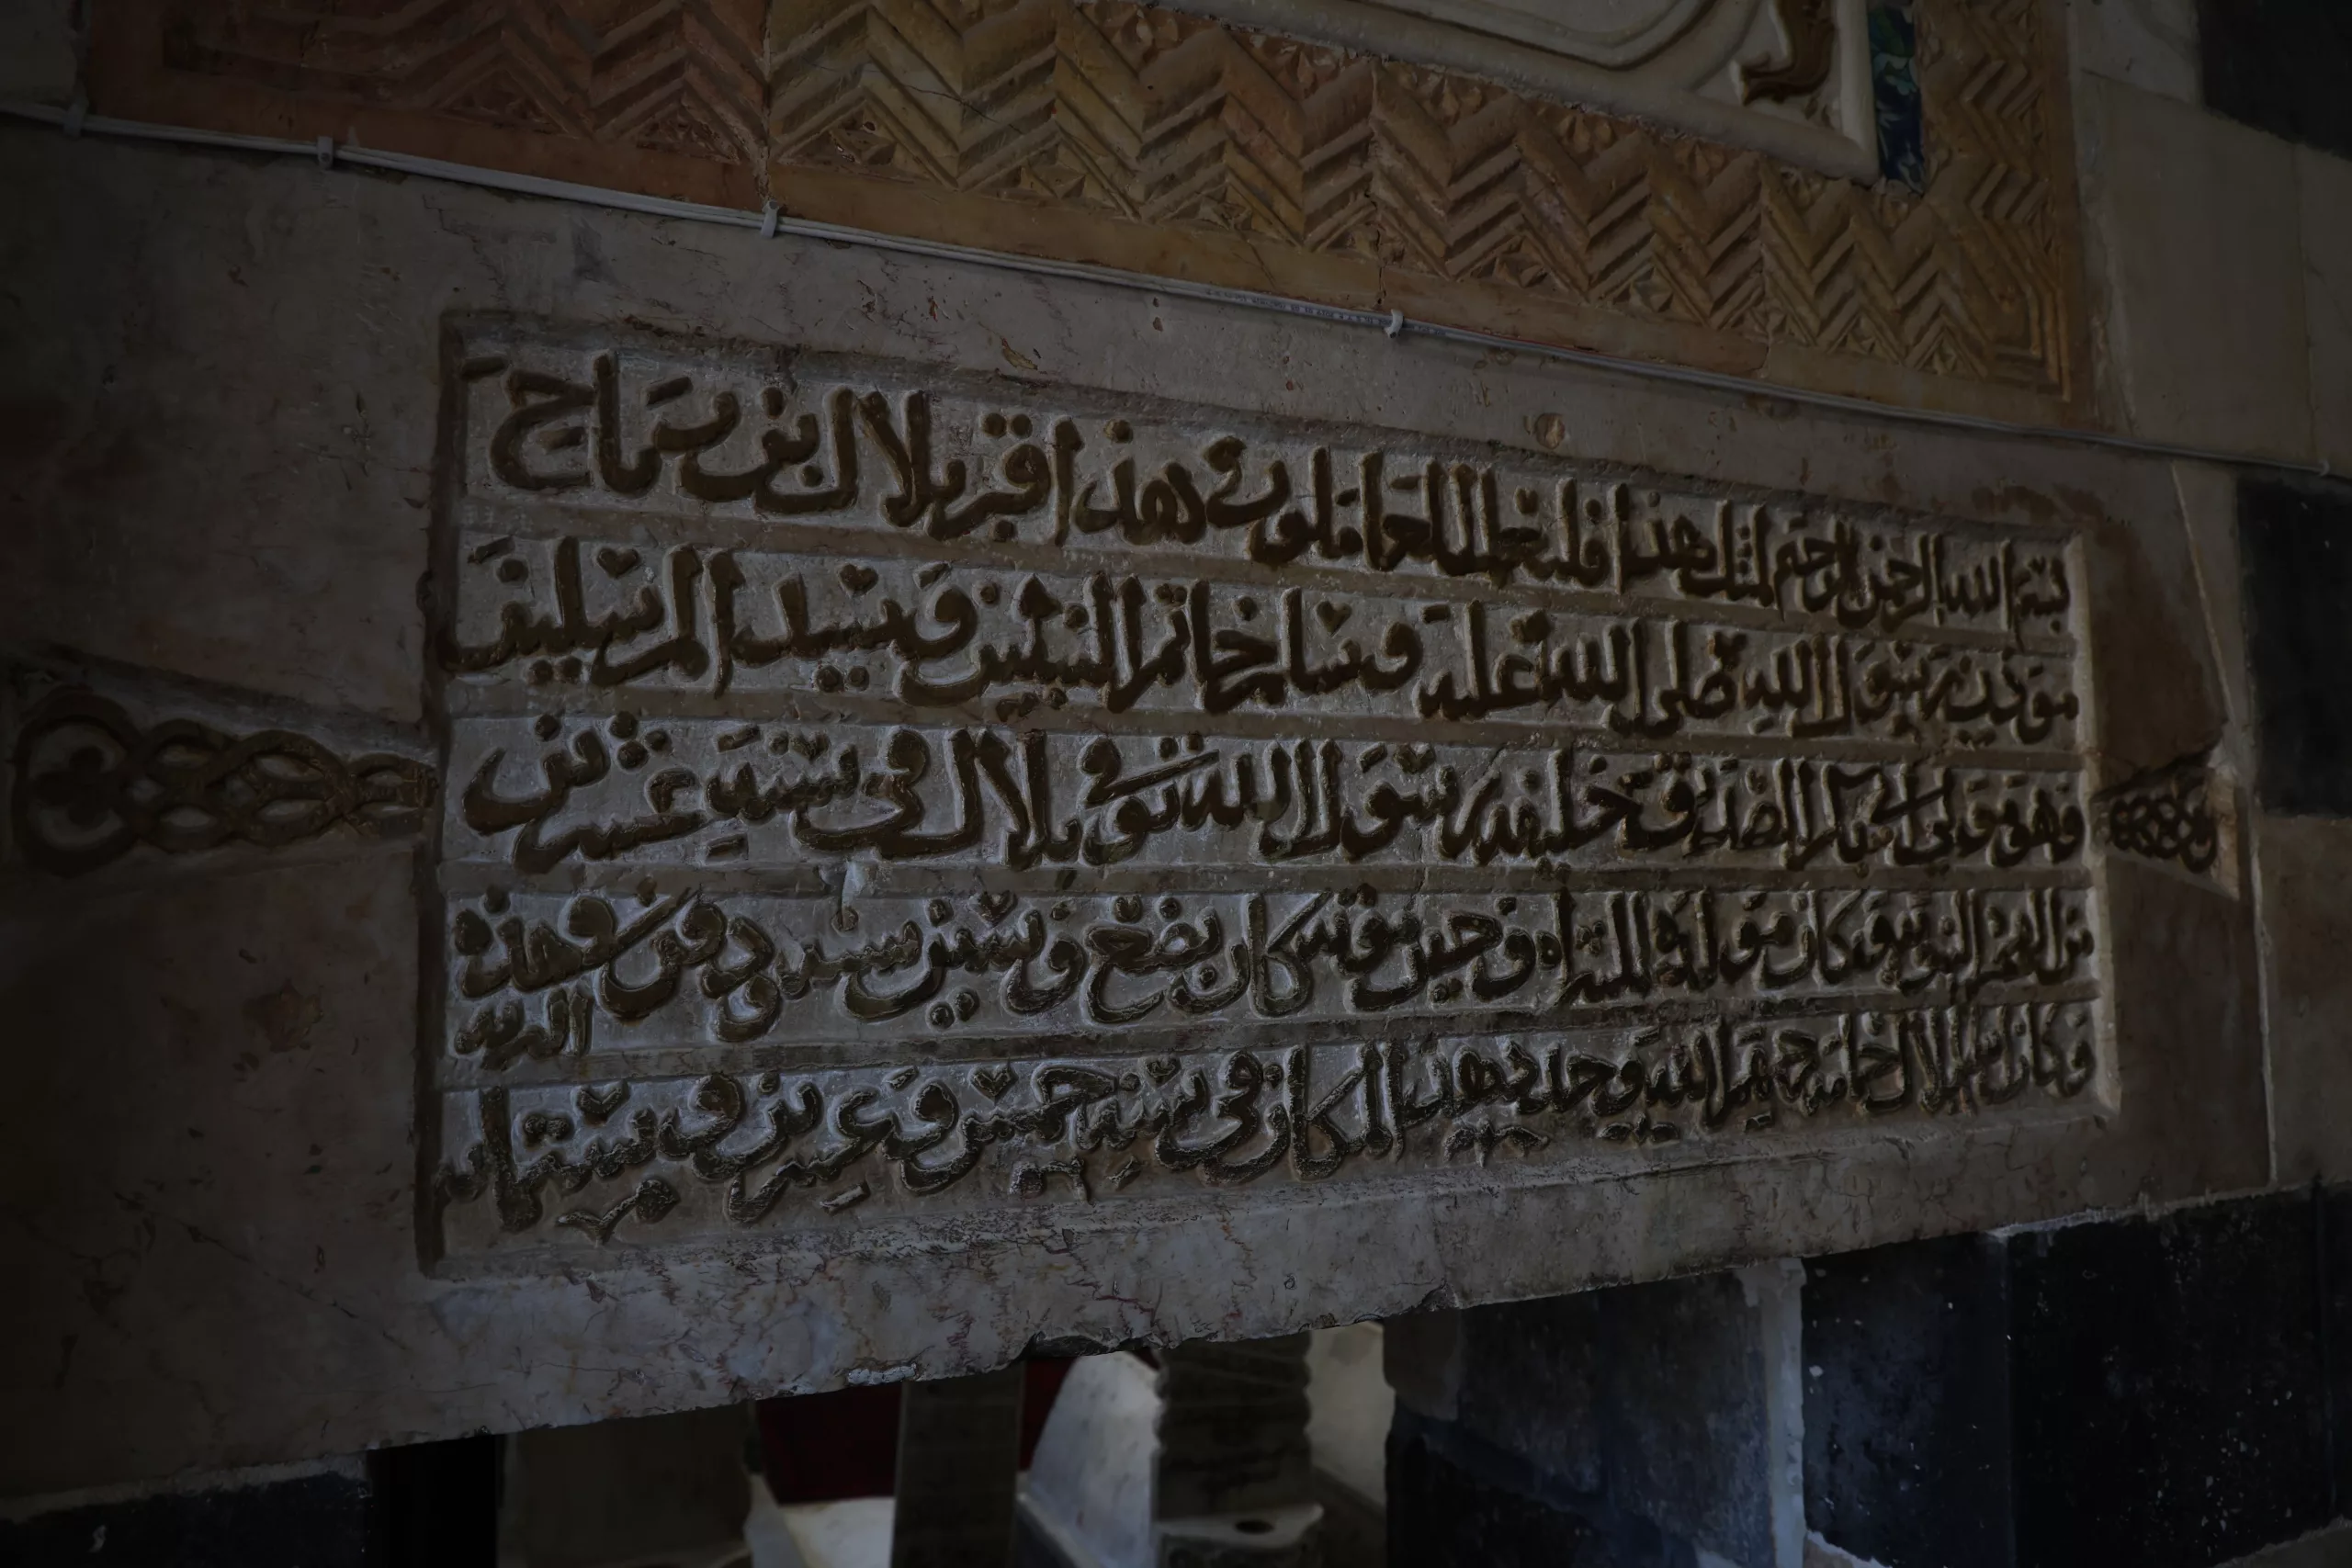 بسم الله الرحمن الرحيم لمثل هذا فليعمل العاملون هذا قبر بلال بن حمامة
مؤذن رسول الله صلى الله عليه وسلم خاتم النبيين وسيد المرسلين
وهو مولى ابي بكر الصديق خليفة رسول الله توفي بلال في سنة عشرين
من الهجرة النبوية وكان مولده السراة وحين موته كان بضع وستين سنة ودفن
وكان بلال حمامة رحمهم الله وجدد هذا المكان في سنة خمس وعشرين وستمائة